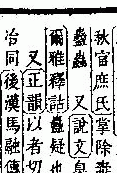 秋官庶氏掌除毒
蠱蠱又說文
爾雅釋詁蠱疑也
又正韻以者切
冶同後漢馬融傳